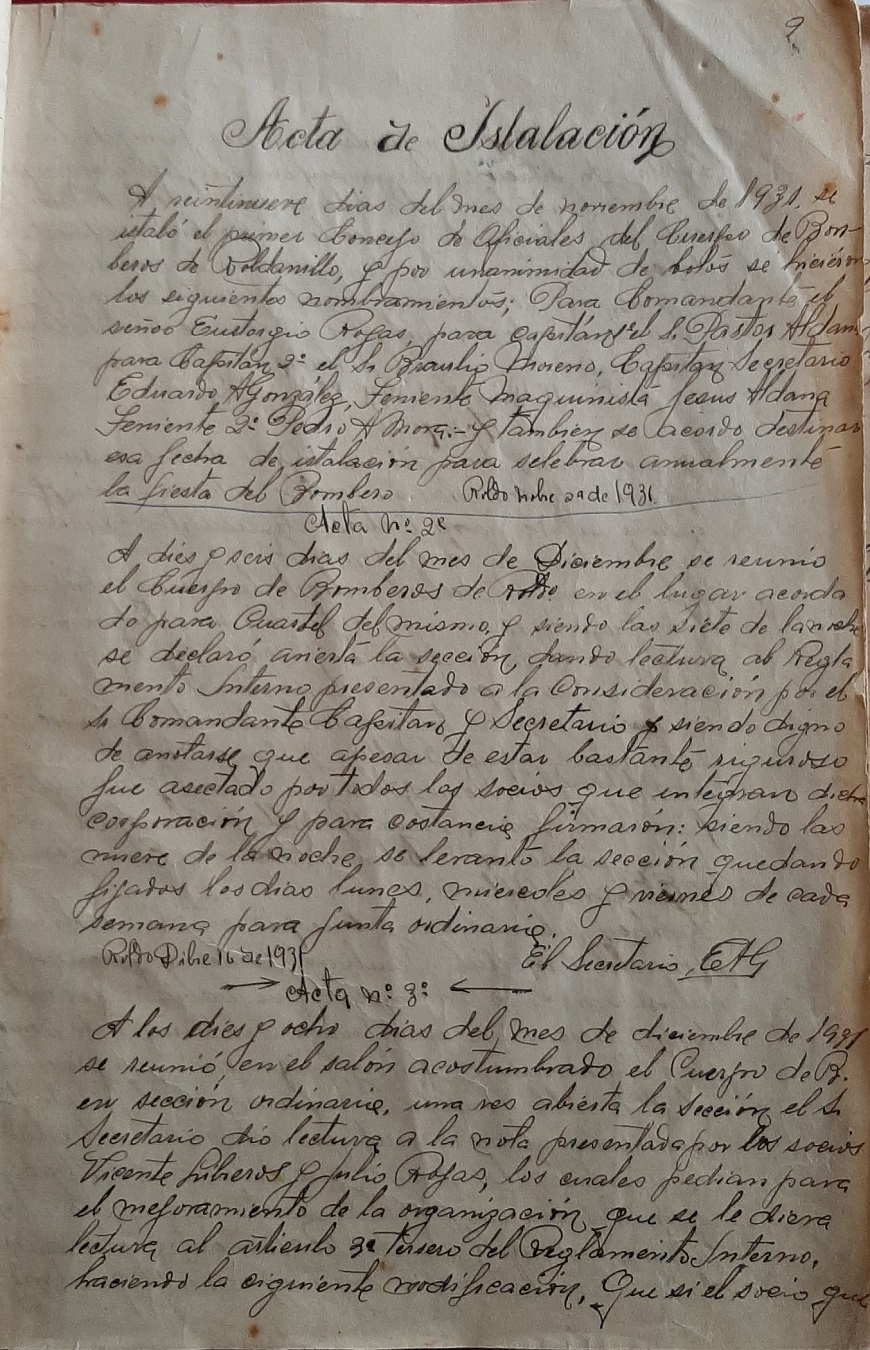 2
Acta de Istalación
A veintinueve dias del mes de noviembre de 1931. se
istaló el primer Concejo de Oficiales del Cuerpo de Bon-
beros de Roldanillo, y por unanimidad de botos se hicieron
los siguientes nombramientos; Para Comandante el
señor Eustorgio Rojas, para capitán 1º el Sr. Pastor Aldana
para Capitan 2º el Sr Braulio Moreno, Capitan Secretario
Eduardo A González, Teniente Maquinista Jesus Aldana
Teniente 2º Pedro A Mora.- y tambien se acordo destinar
esa fecha de istalación para selebrar anualmente
la fiesta del Bombero Roldo nobre 29 de 1931.
Acta nº 2ª
A dies y seis dias del mes de Diciembre se reunio
el Cuerpo de Bomberos de Roldo. en el lugar acorda
do para Cuartel del mismo, y siendo las siete de la noche
se declaró avierta la sección, dando lectura al Regla
mento Interno presentado a la Consideración por el
Sr Comandante Capitan y Secretario y siendo digno
de anotarse que apesar de estar bastante riguroso
fue asectado por todos los socios que integran dicha
corporación y para costancia firmarón: siendo las
nueve de la noche, se levantó la sección quedando
fijados los dias lunes, miercoles y viernes de cada
semana para junta ordinaria.
Roldo Dibre 16 de 1931 El Secretario, EAG
Acta nº 3º
A los dies y ocho dias del mes de diciembre de 1931
se reunió en el salón acostumbrado el Cuerpo de B.
en sección ordinaria, una ves abierta la sección el Sr
Secretario dio lectura a la nota presentada por los socios
Vicente Libreros y Julio Rojas, los cuales pedian para
el mejoramiento de la organización que se le diera
lectura al artículo 3º tersero del Reglamento Interno,
haciendo la ciguiente modificación, Que si el socio que